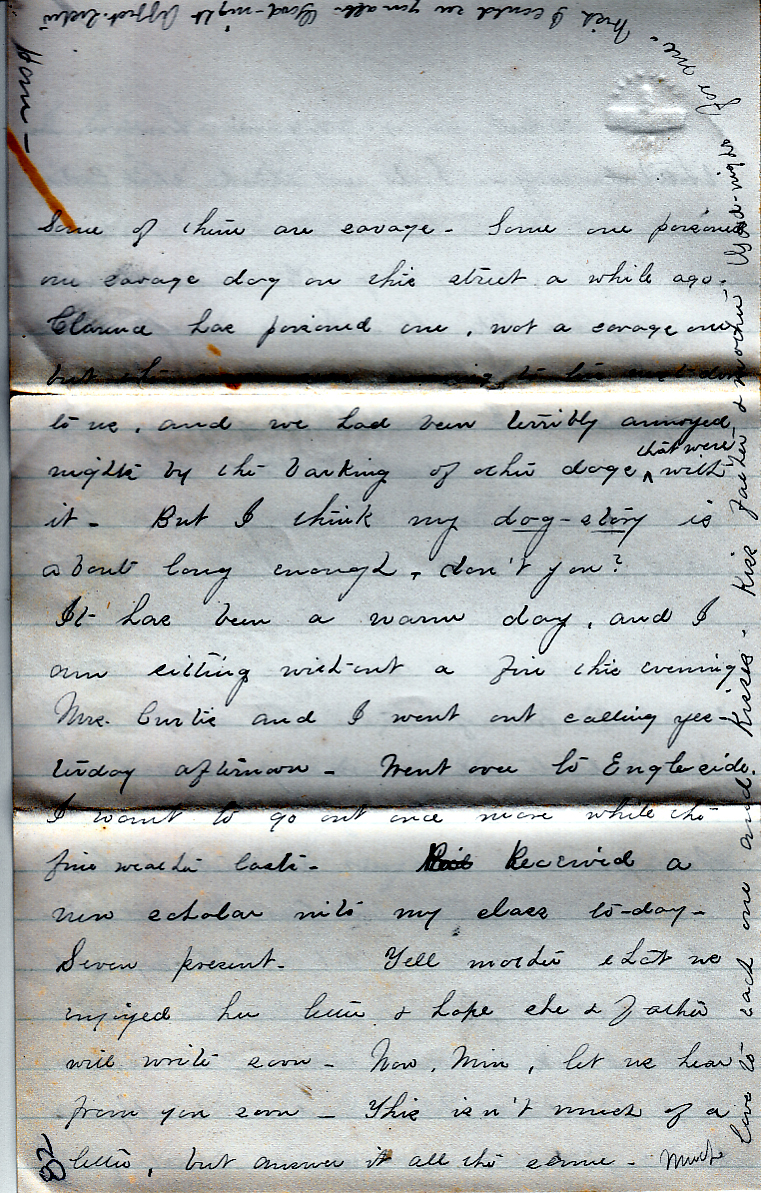 Some of them are savage - Some one poisoned
one savage dog on this street a while ago.
Clarence has poisoned one, not a savage one
but
to us, and we had been terribly annoyed
nights by the barking of other dogs that were with
it - But I think my dog-story is
about long enough, don't you?
It has been a warm day, and I
am sitting without a fire this evening
Mrs. Curtis and I went out calling yes-
terday afternoon - Went over to Engleside.
I want to go out once more while the
fine weather lasts - Received a
new scholar into my class to-day -
Seven present - Tell mother that we
enjoyed her letter & hope she & Father
will write soon - Now, Min, let us hear
from you soon - This isn't much of a
letter, but answer it all the same - Much
love to each one and kisses - Kiss father & mother
for me. Wish I could see you all. Good-night
Good-night
82